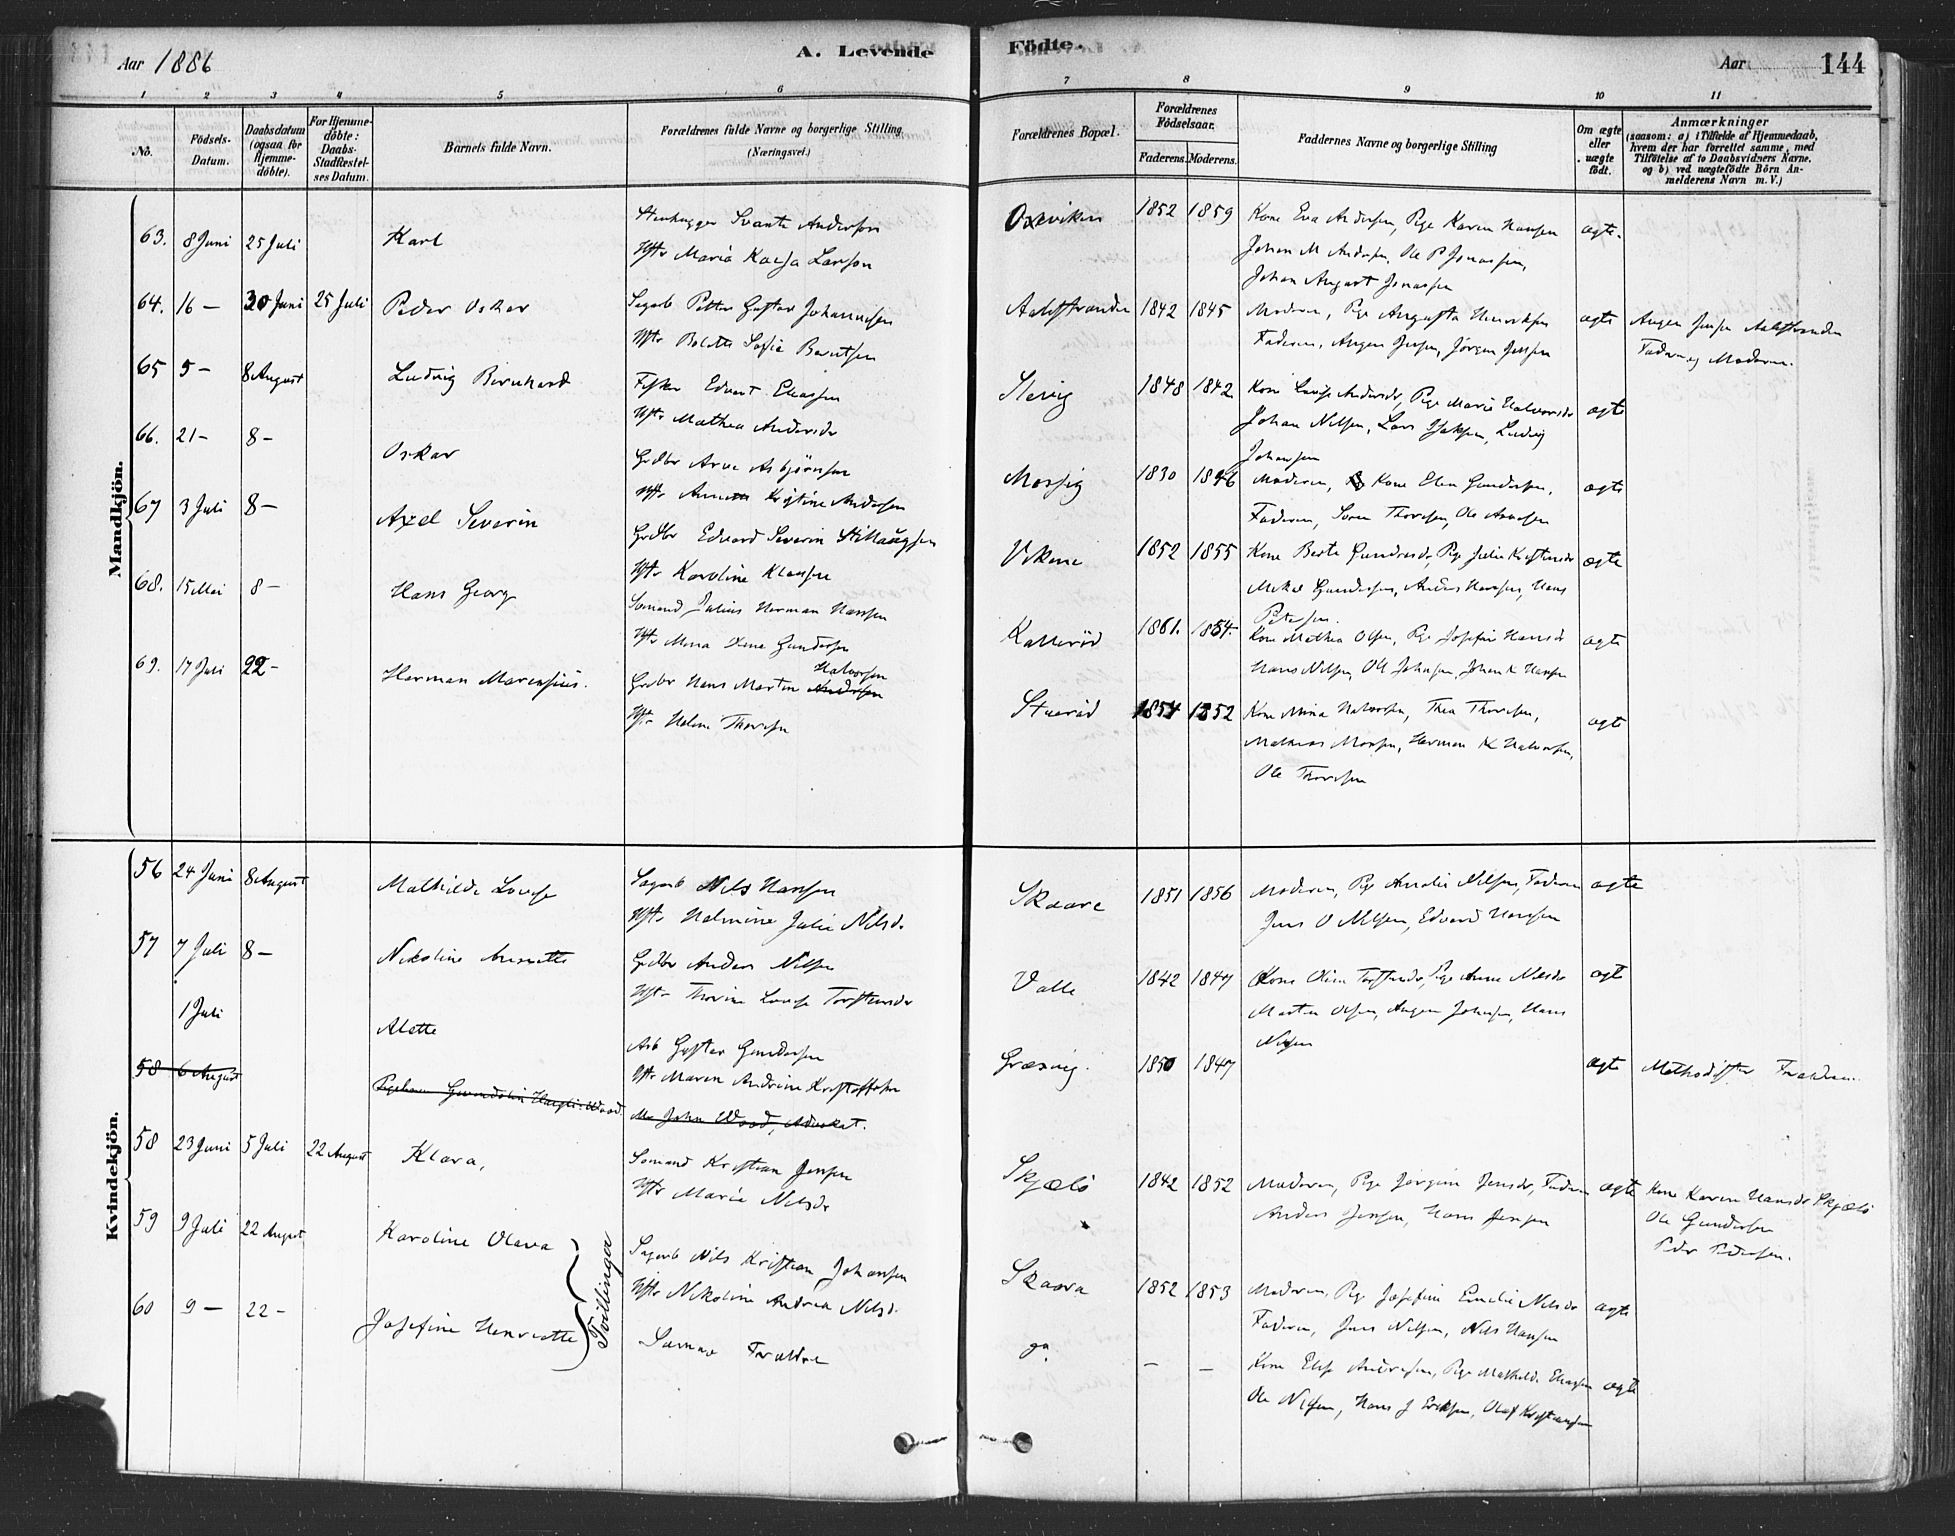 Aar 1886
A. Levende
Födte.
Aar
144
1 2 3 4 5 6 7 8 9 10 11
No.
Födsels-
Datum.
Daabsdatum
(ogsaa for
Hjemme-
döbte).
For Hjemme-
döbte:
Daabs-
Stadfæstel-
ses Datum.
Barnets fulde Navn.
Forældrenes fulde Navne og borgerlige Stilling
(Næringsvei.)
Forældrenes Bopæl.
Forældrenes
Födselsaar.
Faderens. Moderens.
Faddernes Navne og borgerlige Stilling
Om ægte
eller
uægte
födt.
Anmærkninger
(saasom: a) i Tilfælde af Hjemmedaab,
hvem der har forrettet samme, med
Tilföielse af to Daabsvidners Navne.
og b) ved uægtefödte Börn An-
melderens Navn m. V.)
Mandkjön.
63. 8 Juni 25 Juli
Karl
Stenhugger Svante Anderson
Hstr Maria Kaisa Larson
1852 1859
Kone Eva Andersen, Pige Karen Hansen
Johan M Andersen, Ole P Jonassen,
Johan August Jonassen
ægte.
64. 16 — 30 Juni 25 Juli
Peder Oskar
Sagarb Petter Gustav Johannesen
Hstr Bolette Sofie Berntsen
Aalestranden 1842 1845
Moderen, Pige Augusta Henriksen
Faderen, Jørgen Jensen
ægte
Aalestranden
Faderen og Moderen.
65 5 — 8 August
Ludvig Bernhard
Fisker Edvart Eliassen
Hstr Mathea Andersdr
Slevig 1848 1842
Kone Lovise Andersdr, Pige Marie Halvorsdr
Johan Nilsen, Lars Isaksen, Ludvig
Johansen
ægte
66. 21 — 8 —
Oskar
Grdbr Arve Asbjørnsen
Hstr Annette Kristine Andersen
1830 1846
Moderen, Kone Elen Gundersen,
Faderen, Soren Thoresen, Ole Arvesen
ægte
67 3 Juli 8 —
Axel Severin
Grdbr Edvard Severin
Hstr Karoline Klausen
Vikene 1852 1855
Kone Berte Gundersdr, Pige Julie Kristiansdr
Mikal Gundersen, Anders Hansen, Hans
Petersen.
ægte
68. 15 Mai 8 —
Hans Georg
Sömand Julius Herman Hansen
Hstr Mina Gundersen
Kallerød 1861. 1854.
Kone Mathea Olsen, Pige Josefine Hansdr
Hans Nilsen, Ole Johnsen, Johan K Hansen
ægte
69. 17 Juli 22 —
Herman Marensius.
Grdbr Hans Martin Andersen Halvorsen
Hstr Helene Thoresen
1854 1852
Kone Mina Halvorsen, Thea Thoresen,
Mathias Monsen, Herman K Halvorsen,
Ole Thoresen
ægte
Kvindekjön.
56 24 Juni 8 August
Mathilde Lovise
Sagarb Nils Hansen
Hstr Helmine Julie Nilsd.
Skaare 1851 1856
Moderen, Pige Amalie Nilsen, Faderen
Jens O Nilsen, Edvard Hansen
ægte
57 7 Juli 8 —
Nikoline Annette
Grdbr Anders Nilsen
Hstr Thorine Lovise Torstensdr
Valle 1842 1847
Kone Olava Torstensdr, Pige Anne Nilsdr
Martin Olsen, Hans
Nilsen
ægt
1 Juli
Alette
Arb Gustav Gundersen
Hstr Maren Andrine Kristoffersen
Græsvig. 1850 1847
ægte
Methodister Forældrene.
58 6 August
Gwendolin Wood.
Mr John Wood, Advokat.
58 23 Juni 5 Juli 22 August
Klara,
Sömand Kristian Jensen
Hstr Marie Nilsdr
Skjælö 1842 1852
Moderen, Pige Jørgine Jensdr, Faderen
Anders Jensen, Hans Jensen
ægte
Kone Karen Hansdr Skjælö
Ole Gundersen
Peder Pedersen.
59 9 Juli 22 August
Karoline Olava
Tvillinger
Sagarb Nils Kristian Johansen
Hstr Nikoline Andrea Nilsd.
Skaara 1852 1853
Moderen, Pige Josefine Emilie Nilsdr
Faderen, Jens Nilsen, Nils Hansen
ægte
60 9 — 22 —
Josefine Henriette
Samme Forældre
— —
Kone Elise Andersen, Pige Mathilde Eliassen
Ole Nilsen, Hans J Eriksen, Olaf Kristiansen
ægte